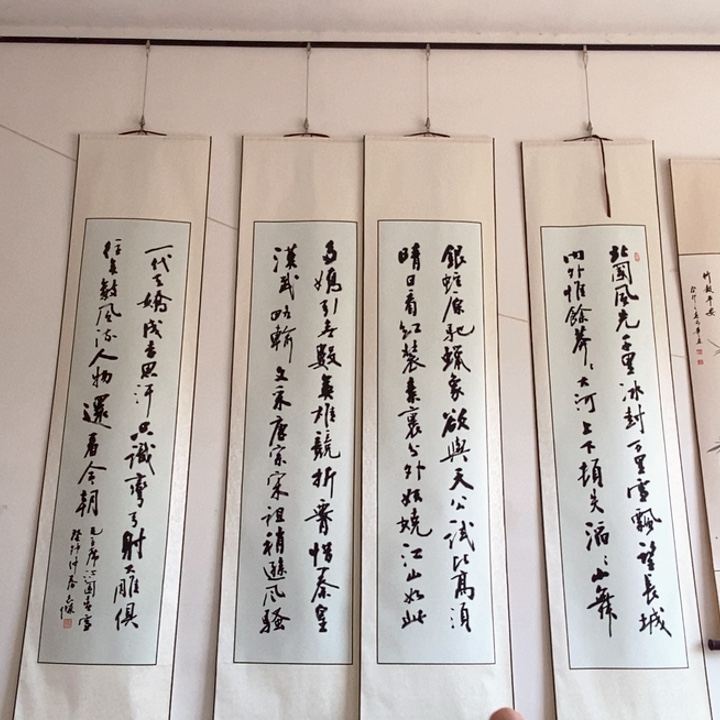 竹報平安
北國風光千里冰封万里雪飄望長城
内外惟餘莽〻大河上下頓失滔〻山舞
銀蛇原馳蠟象欲與天公試比高須
晴日看紅裝素裹分外妖嬈江山如此
多嬌引無數英雄競折腰惜秦皇
漢武略輸文采唐宗宋祖稍遜風騷
一代天嬌成吉思汗只識彎弓射大雕俱
往矣數風流人物還看今朝
毛主席沁園春雪
癸卯仲春